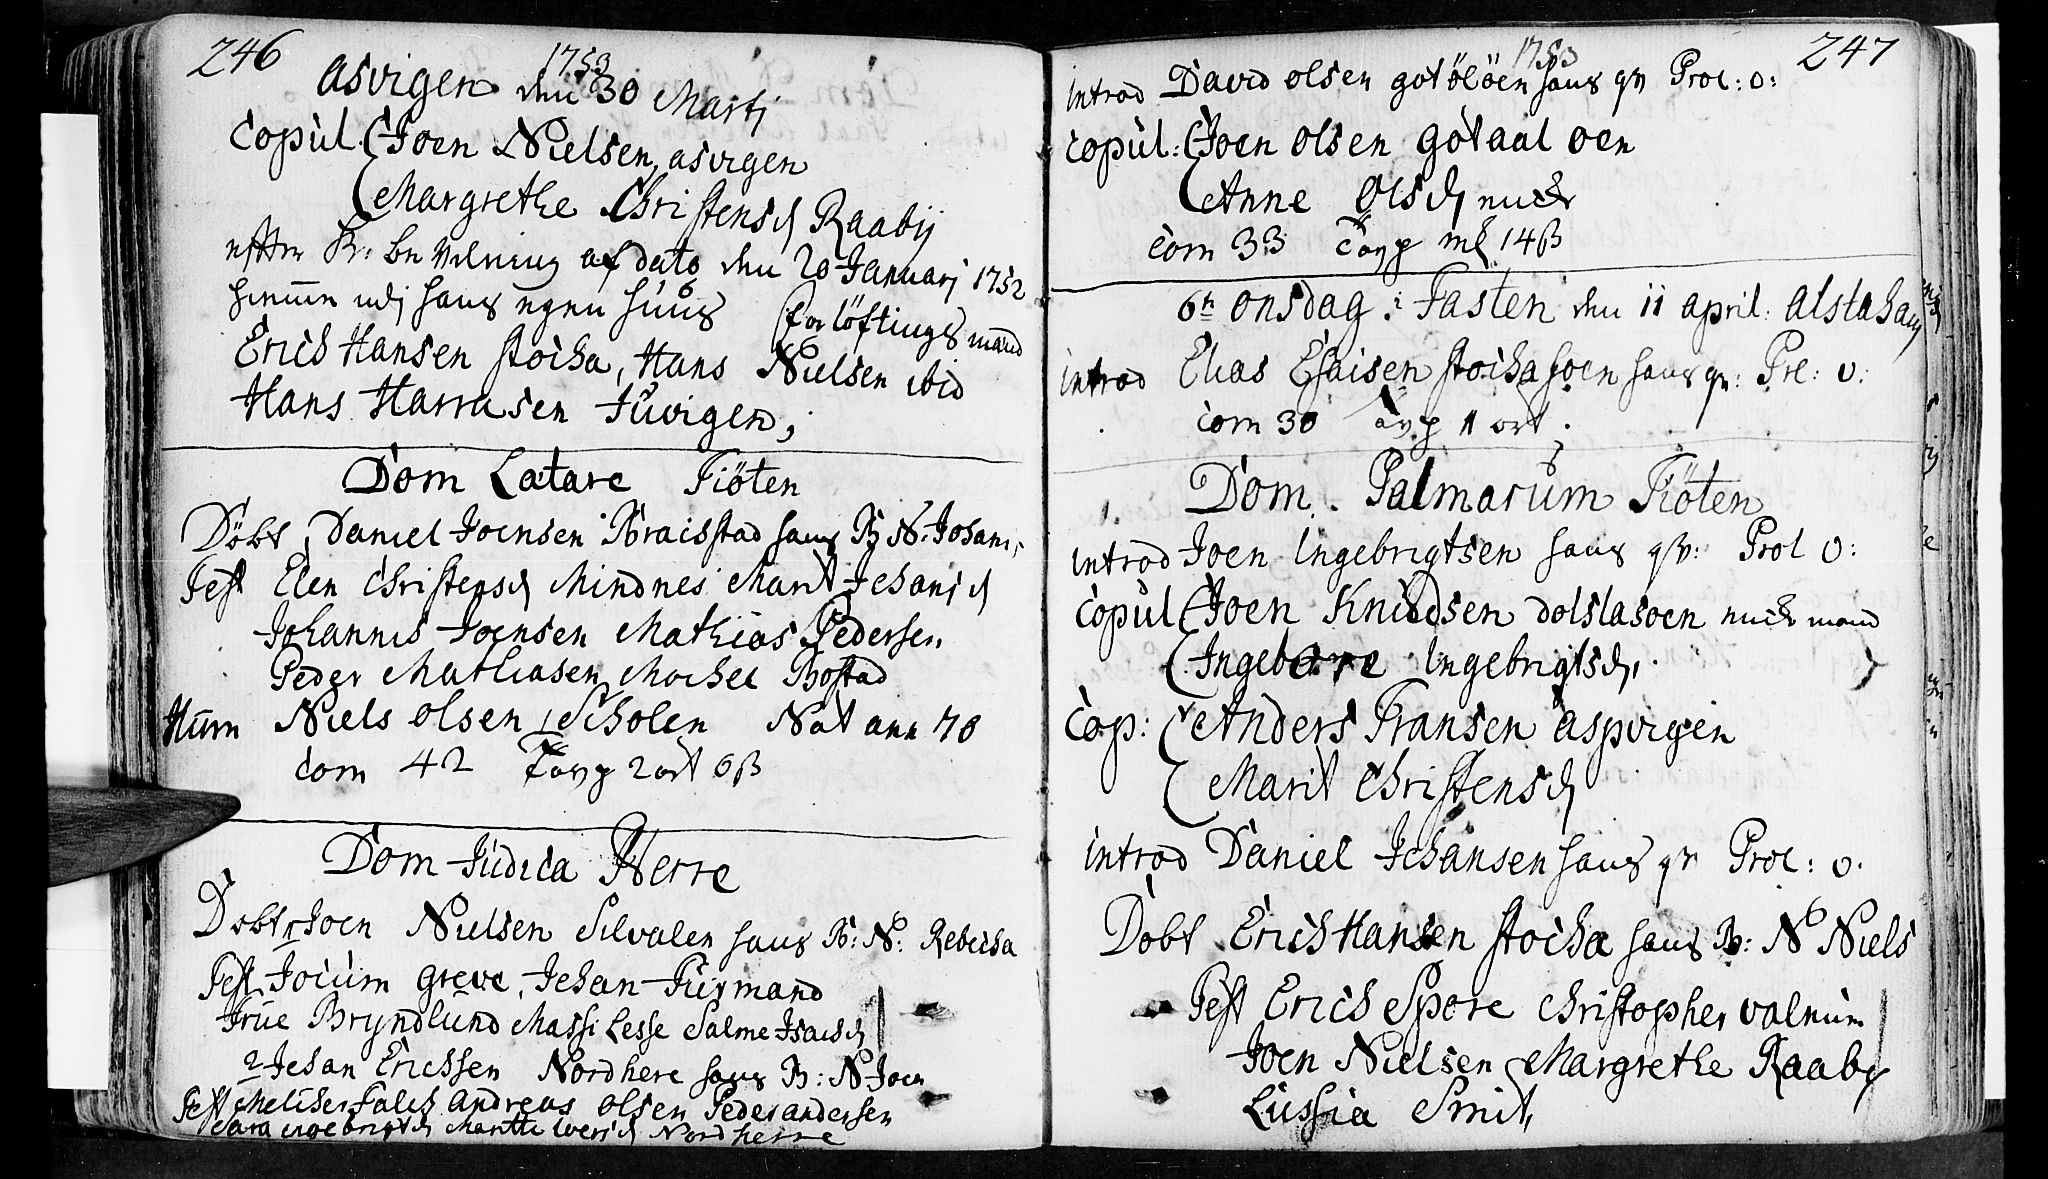 246
1753
asvigen den 30 Martj
Copul. Joen Nielsen, asvigen
Margrethe Christensd Raabÿ
efter af dato den 20 Januarj 1752
hiemme udj hans egen huus forlöftings mænd
Erich Hansen stocka, Hans Nielsen ibid
Hans Harrasen Tuvigen,
Dom Lætare Tiöten
Döbt, Daniel Joensen Braechstad hans B N. Johans,
Test Elen Christensd Mindnes Marit Johansd
Johannis Joensen Mathias Pedersen
Peder Mathiasen, Mochel Bostad
Hum Niels olsen, Scholen Nat ann 70
Com 42 Tavp 2 ort 6 ß
Dom Judica Herre
Döbt 1 Joen Nielsen Silvalen hans B: N: Rebecha
Test Jocum Greve, Johan Furmand
True Bryndlund Massi Lesse Salme Isacsd
2 Johan Ericssen Nordhere hans B: N Joen
Test Melcher Falch Andreas olsen Peder andersen
Sara ingebrigtsd Marthe iversd Nordherre
1753
247
introd David olsen gotölöen hans qv Prol: 0:
Copul: Joen olsen gotaal oen
Anne Olsd
Com 33 Tavp mk 14 ß
6te onsdag i Fasten den 11 april. alstahaug
introd Elias Esaisen stochasoen hans qv: Prl: 0:
Com 30 Tavp 1 ort.
Dom. Palmarum Tiöten
introd Joen Ingebrigtsen hans qv: Prol 0:
Copul Joen Knudsen dolslasoen mand
Ingebore Ingebrigtsd,
Cop: Anders Fransen aspvigen
Marit Christensd
introd Daniel Johansen hans qv Prol: 0.
Döbt Erich Hansen stocha hans B: N Niels
Test Erich Spore Christopher valnum
Joen Nielsen Margrethe Raaby
Lussia Smit,